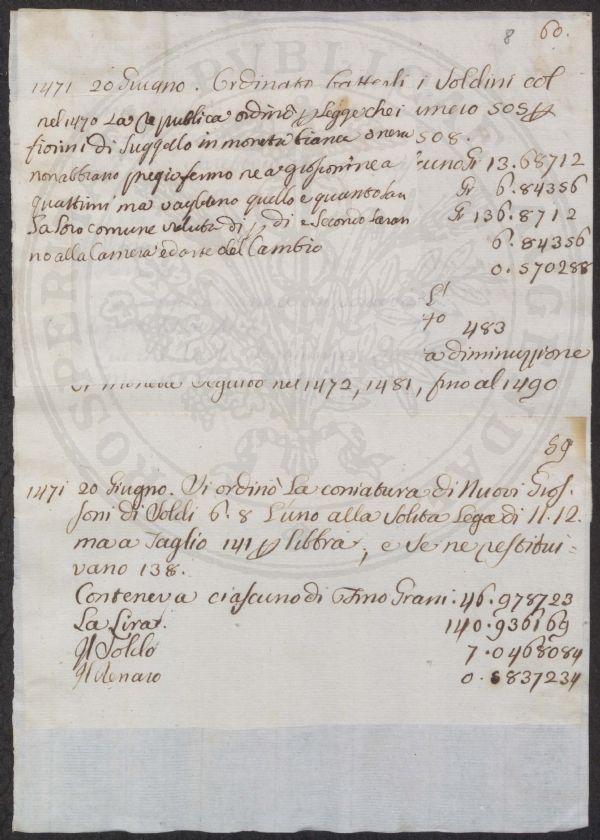 8 60.
1471 20 Giugno. Ordinato battersi i Soldini col
nel 1470 La Republica ordinò p Legge che i
fiorini di Suggello in moneta bianca o nera
non abbiano pregio fermo ne a grossoni ne a
quattrini ma vagliano quello e quanto
Loro comune valuta di p di e Secondo
no alla Camera ed arte del Cambio
umero 505 p
508.
cuno Gi 13.68712
Gi 6.84356
Gi 136.8712
6.84356
0.570288
40 483
a diminuzione
moneta Seguito nel 1472, 1481, fino al 1490
59
1471 20 Giugno. Si ordinò La coniatura di Nuovi Gros-
soni di Soldi 6.8 L'uno alla Solita Lega di 11.12.
ma a Taglio 141 p libbra, e Se ne restitui-
vano 138.
Conteneva ciascuno di Fino Grani. 46.978723
La Lira. 140.936169
Il Soldo 7.0468084
Il denaro 0.5837234
PUBLICAE
PROSPERITATI
AUGENDAE